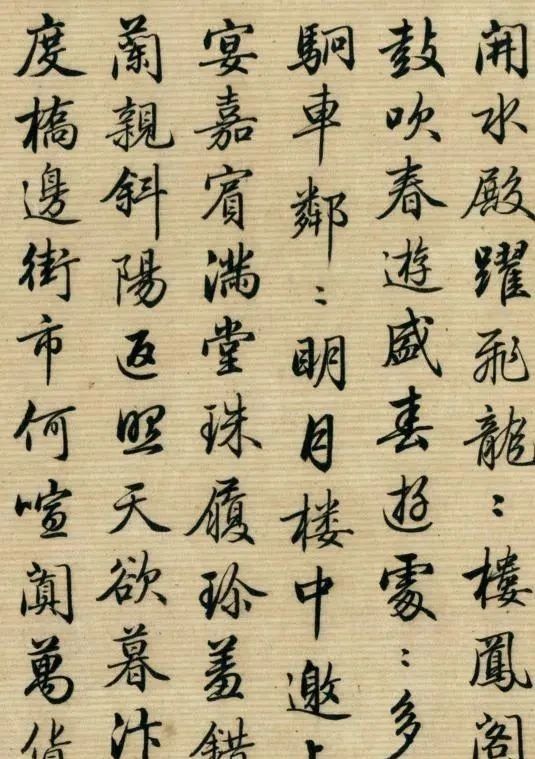 開水殿躍飛龍〻樓鳳閣
鼓吹春遊盛春遊處〻多
駟車鄰〻明月楼中邀上
宴嘉賓滿堂珠履珎羞錯
蘭親斜陽返照天欲暮汴
度橋邊街市何喧闐萬貨